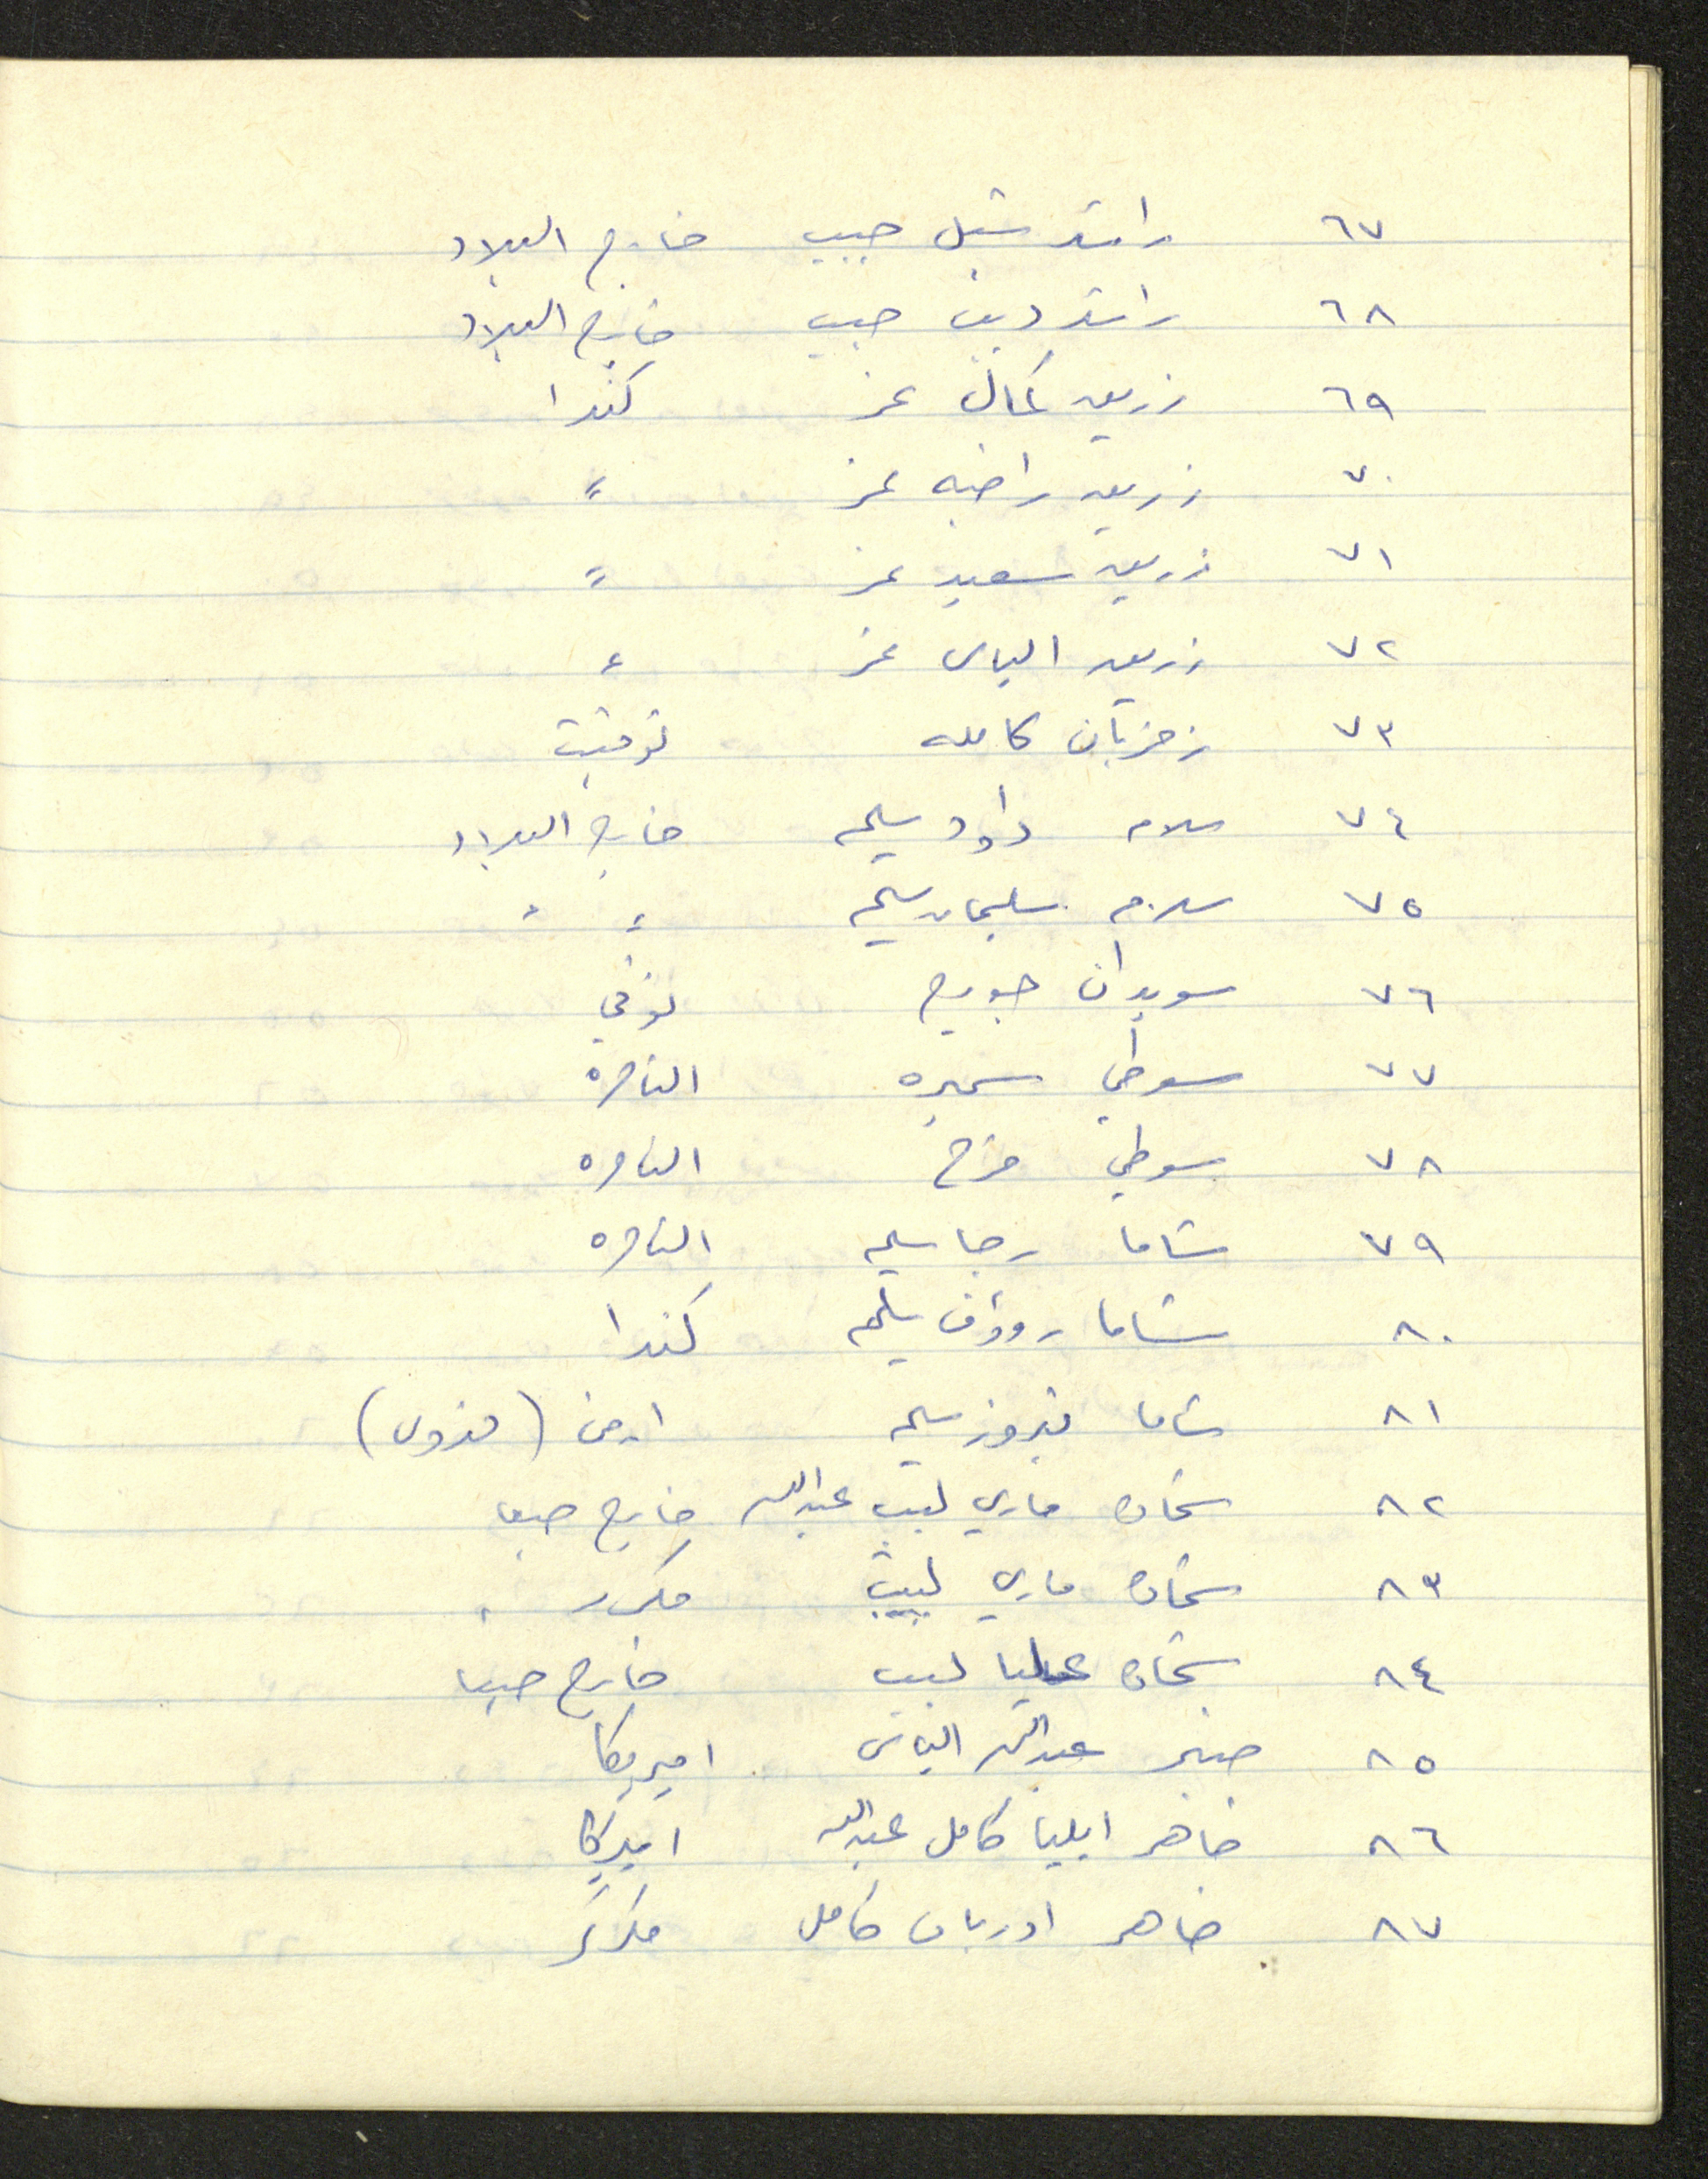 ٦٧ راشد شبل حبيب خارج البلاد
٦٨ راشد ديب حبيب خارج البلاد
٦٩ زريق كمال عز كندا
٧٠ زريق راضيه عز "
٧١ زريق سعيد عز "
٧٢ زريق الياس عز "
٧٣ كامله توفيت
٧٤ سلام داود سليم خارج البلاد
٧٥ سلام سليمان سليم " "
٧٦ سويدان جوريج توفي
٧٧ سوطي سميره الناصره
٧٨ سوطي فرح الناصره
٧٩ شاما رجا سليم الناصره
٨٠ شاما رووف سليم كندا
٨١ شاما فيروز سليم
٨٢ شحاده ماري لبيب عبدالله خارج حيفا
٨٣ شحاده ماري لبيب مكرر
٨٤ شحاده عليا لبيب خارج حيفا
٨٥ عبدالله الياس اميريكا
٨٦ ضاهر ايليا كامل عبدالله اميركا
٨٧ ضاهر ادريان كامل مكرر